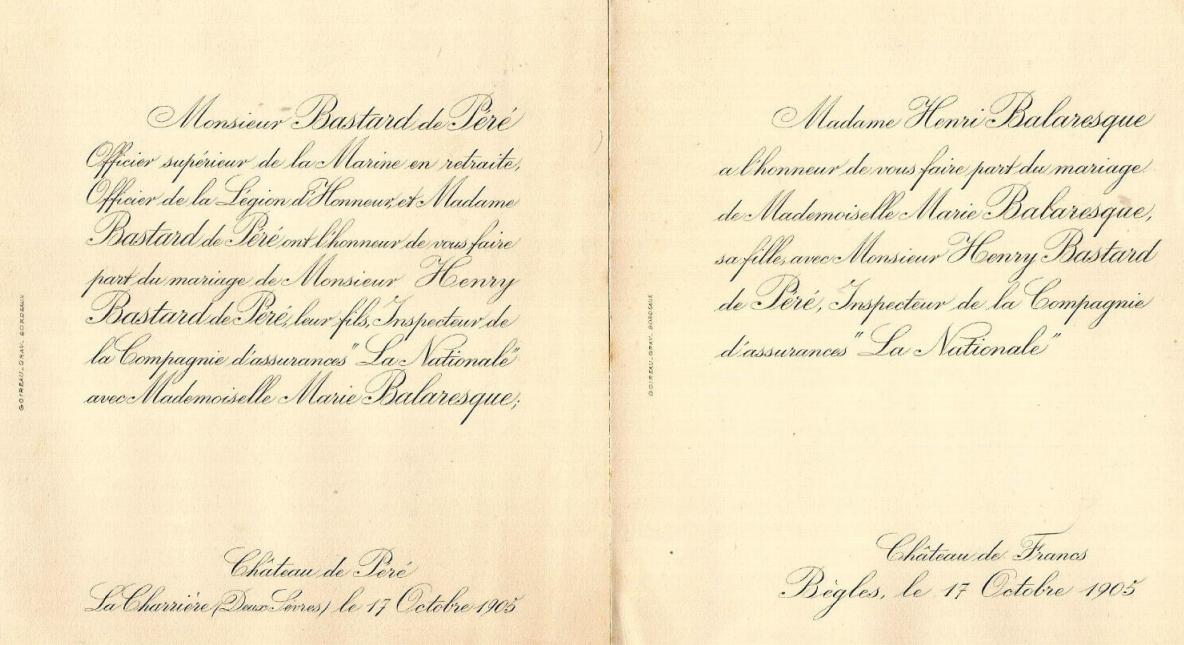 Monsieur Bastard de Péré
Officier supérieur de la Marine en retraite,
Officier de la Légion d'Honneur, et Madame
Bastard de Péré ont l'honneur de vous faire
part du mariage de Monsieur Henry
Bastard de Péré, leur fils, Inspecteur de
la Compagnie d'assurances "La Nationale"
avec Mademoiselle Marie Balaresque;
Château de Péré
La Charrière (Deux Sèvres) le 17 Octobre 1905
GOIREAU. GRAV. BORDEAUX
Madame Henri Balaresque
a l'honneur de vous faire part du mariage
de Mademoiselle Marie Balaresque,
sa fille, avec Monsieur Henry Bastard
de Péré, Inspecteur de la Compagnie
d'assurances "La Nationale"
Château de Francs
Bègles, le 17 Octobre 1905
GOIREAU. GRAV. BORDEAUX